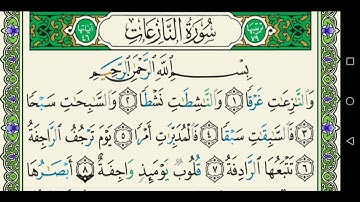 سُورَةُ النَّازِعَاتِ
بِسْمِ اللَّهِ الرَّحْمَٰنِ الرَّحِيمِ
وَالنَّٰزِعَٰتِ غَرْقًا ١ وَالنَّٰشِطَٰتِ نَشْطًا ٢ وَالسَّٰبِحَٰتِ سَبْحًا
٣ فَالسَّٰبِقَٰتِ سَبْقًا ٤ فَالْمُدَبِّرَٰتِ أَمْرًا ٥ يَوْمَ تَرْجُفُ الرَّاجِفَةُ
٦ تَتْبَعُهَا الرَّادِفَةُ ٧ قُلُوبٌ يَوْمَئِذٍ وَاجِفَةٌ ٨ أَبْصَٰرُهَا